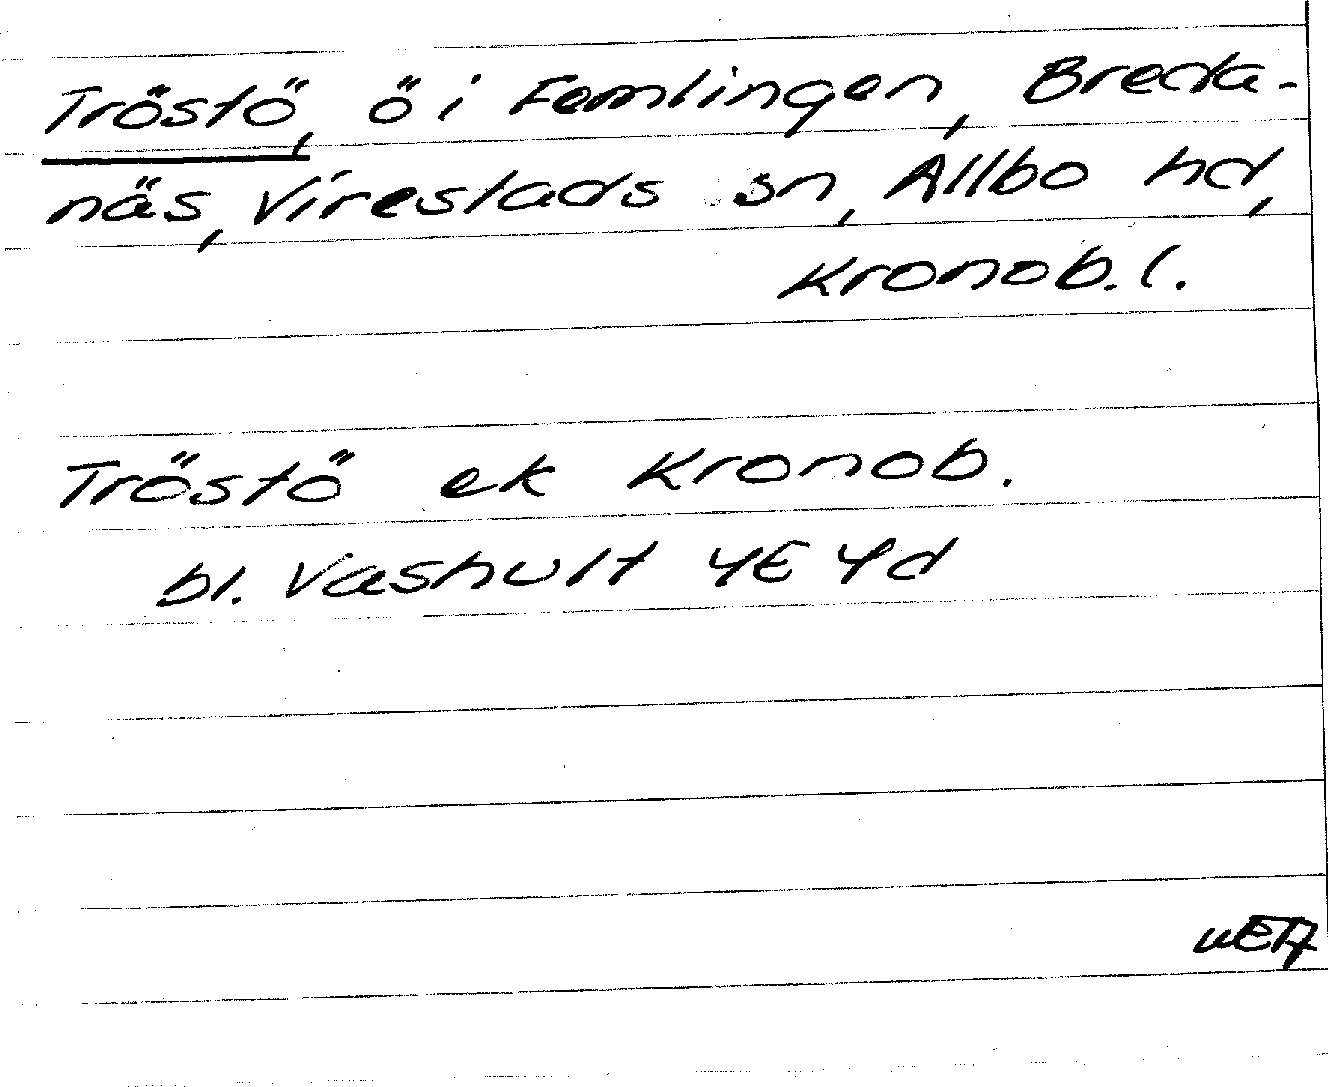 Tröstö, ö i Femlingen, Breda-
näs, Virestads sn, Allbo hd,
Kronob. l.
Tröstö ek Kronob.
bl. Vashult 4E 4d